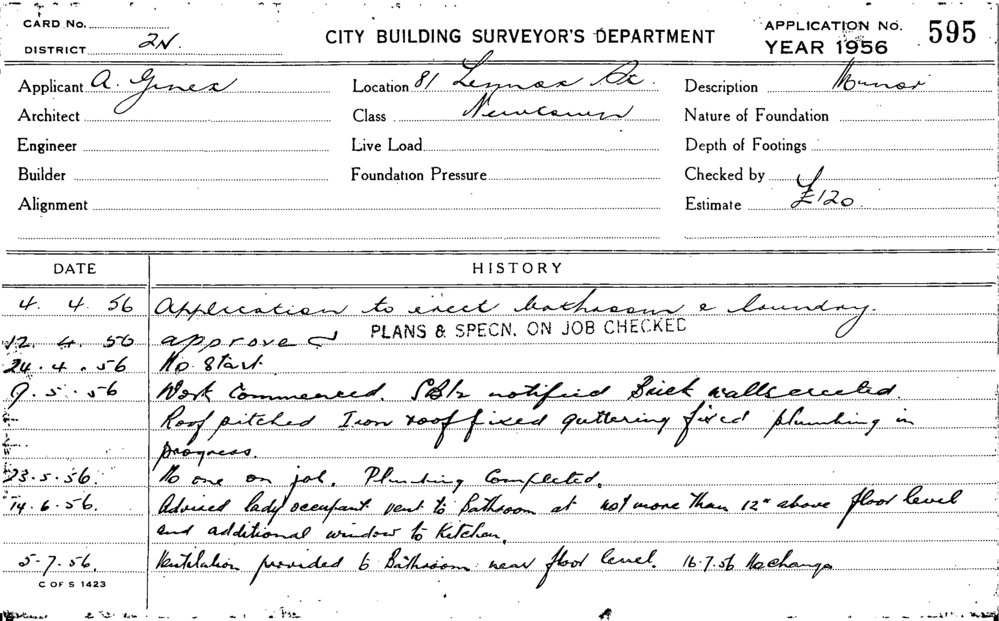 CARD No.
DISTRICT 2N.
CITY BUILDING SURVEYOR'S DEPARTMENT
APPLICATION No. 595
YEAR 1956
Applicant A. Location 81 Lennox St. Description Minor
Architect Class Newtown Nature of Foundation
Engineer Live Load Depth of Footings
Builder Foundation Pressure Checked by
Alignment Estimate £120
DATE HISTORY
4. 4. 56 Application to erect bathroom & laundry.
PLANS & SPECN. ON JOB CHECKED
12. 4. 56 approved
24. 4. 56 No Start
9. 5. 56 Work Commenced. notified Brick walls erected.
Roof pitched Iron roof fixed guttering fixed plumbing in
progress.
23. 5. 56. No one on job. Plumbing Completed.
14. 6. 56. Advised lady occupant vent to Bathroom at not more than 12" above floor level
and additional window to Kitchen.
5. 7. 56. Ventilation provided to Bathroom near floor level. 16.7.56 No change
C OF S 1423